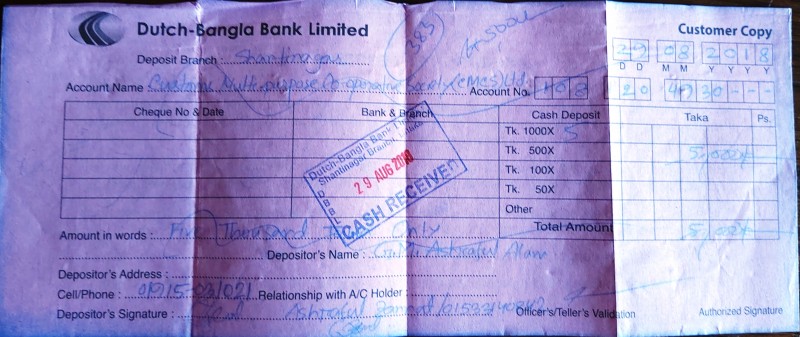 Dutch-Bangla Bank Limited
Customer Copy
383
Deposit Branch : Shantinagar
29 08 2018
D D M M Y Y Y Y
Account Name Customs Multipurpose Co-operative Society (CMCS) Ltd. Account No. 108 120
Cheque No & Date Bank & Branch Cash Deposit Taka Ps.
Tk. 1000X 5
Tk. 500X 5,000/-
Tk. 100X
Tk. 50X
Other
Total Amount 5,000/-
Dutch-Bangla Bank Limited
Shantinagar Branch, Dhaka
29 AUG 2018
DBBL
CASH RECEIVED
Amount in words : Five Thousand Only
Depositor's Name : G.M. Ashraful Alam
Depositor's Address :
Cell/Phone : Relationship with A/C Holder :
Depositor's Signature : Officer's/Teller's Validation Authorized Signature